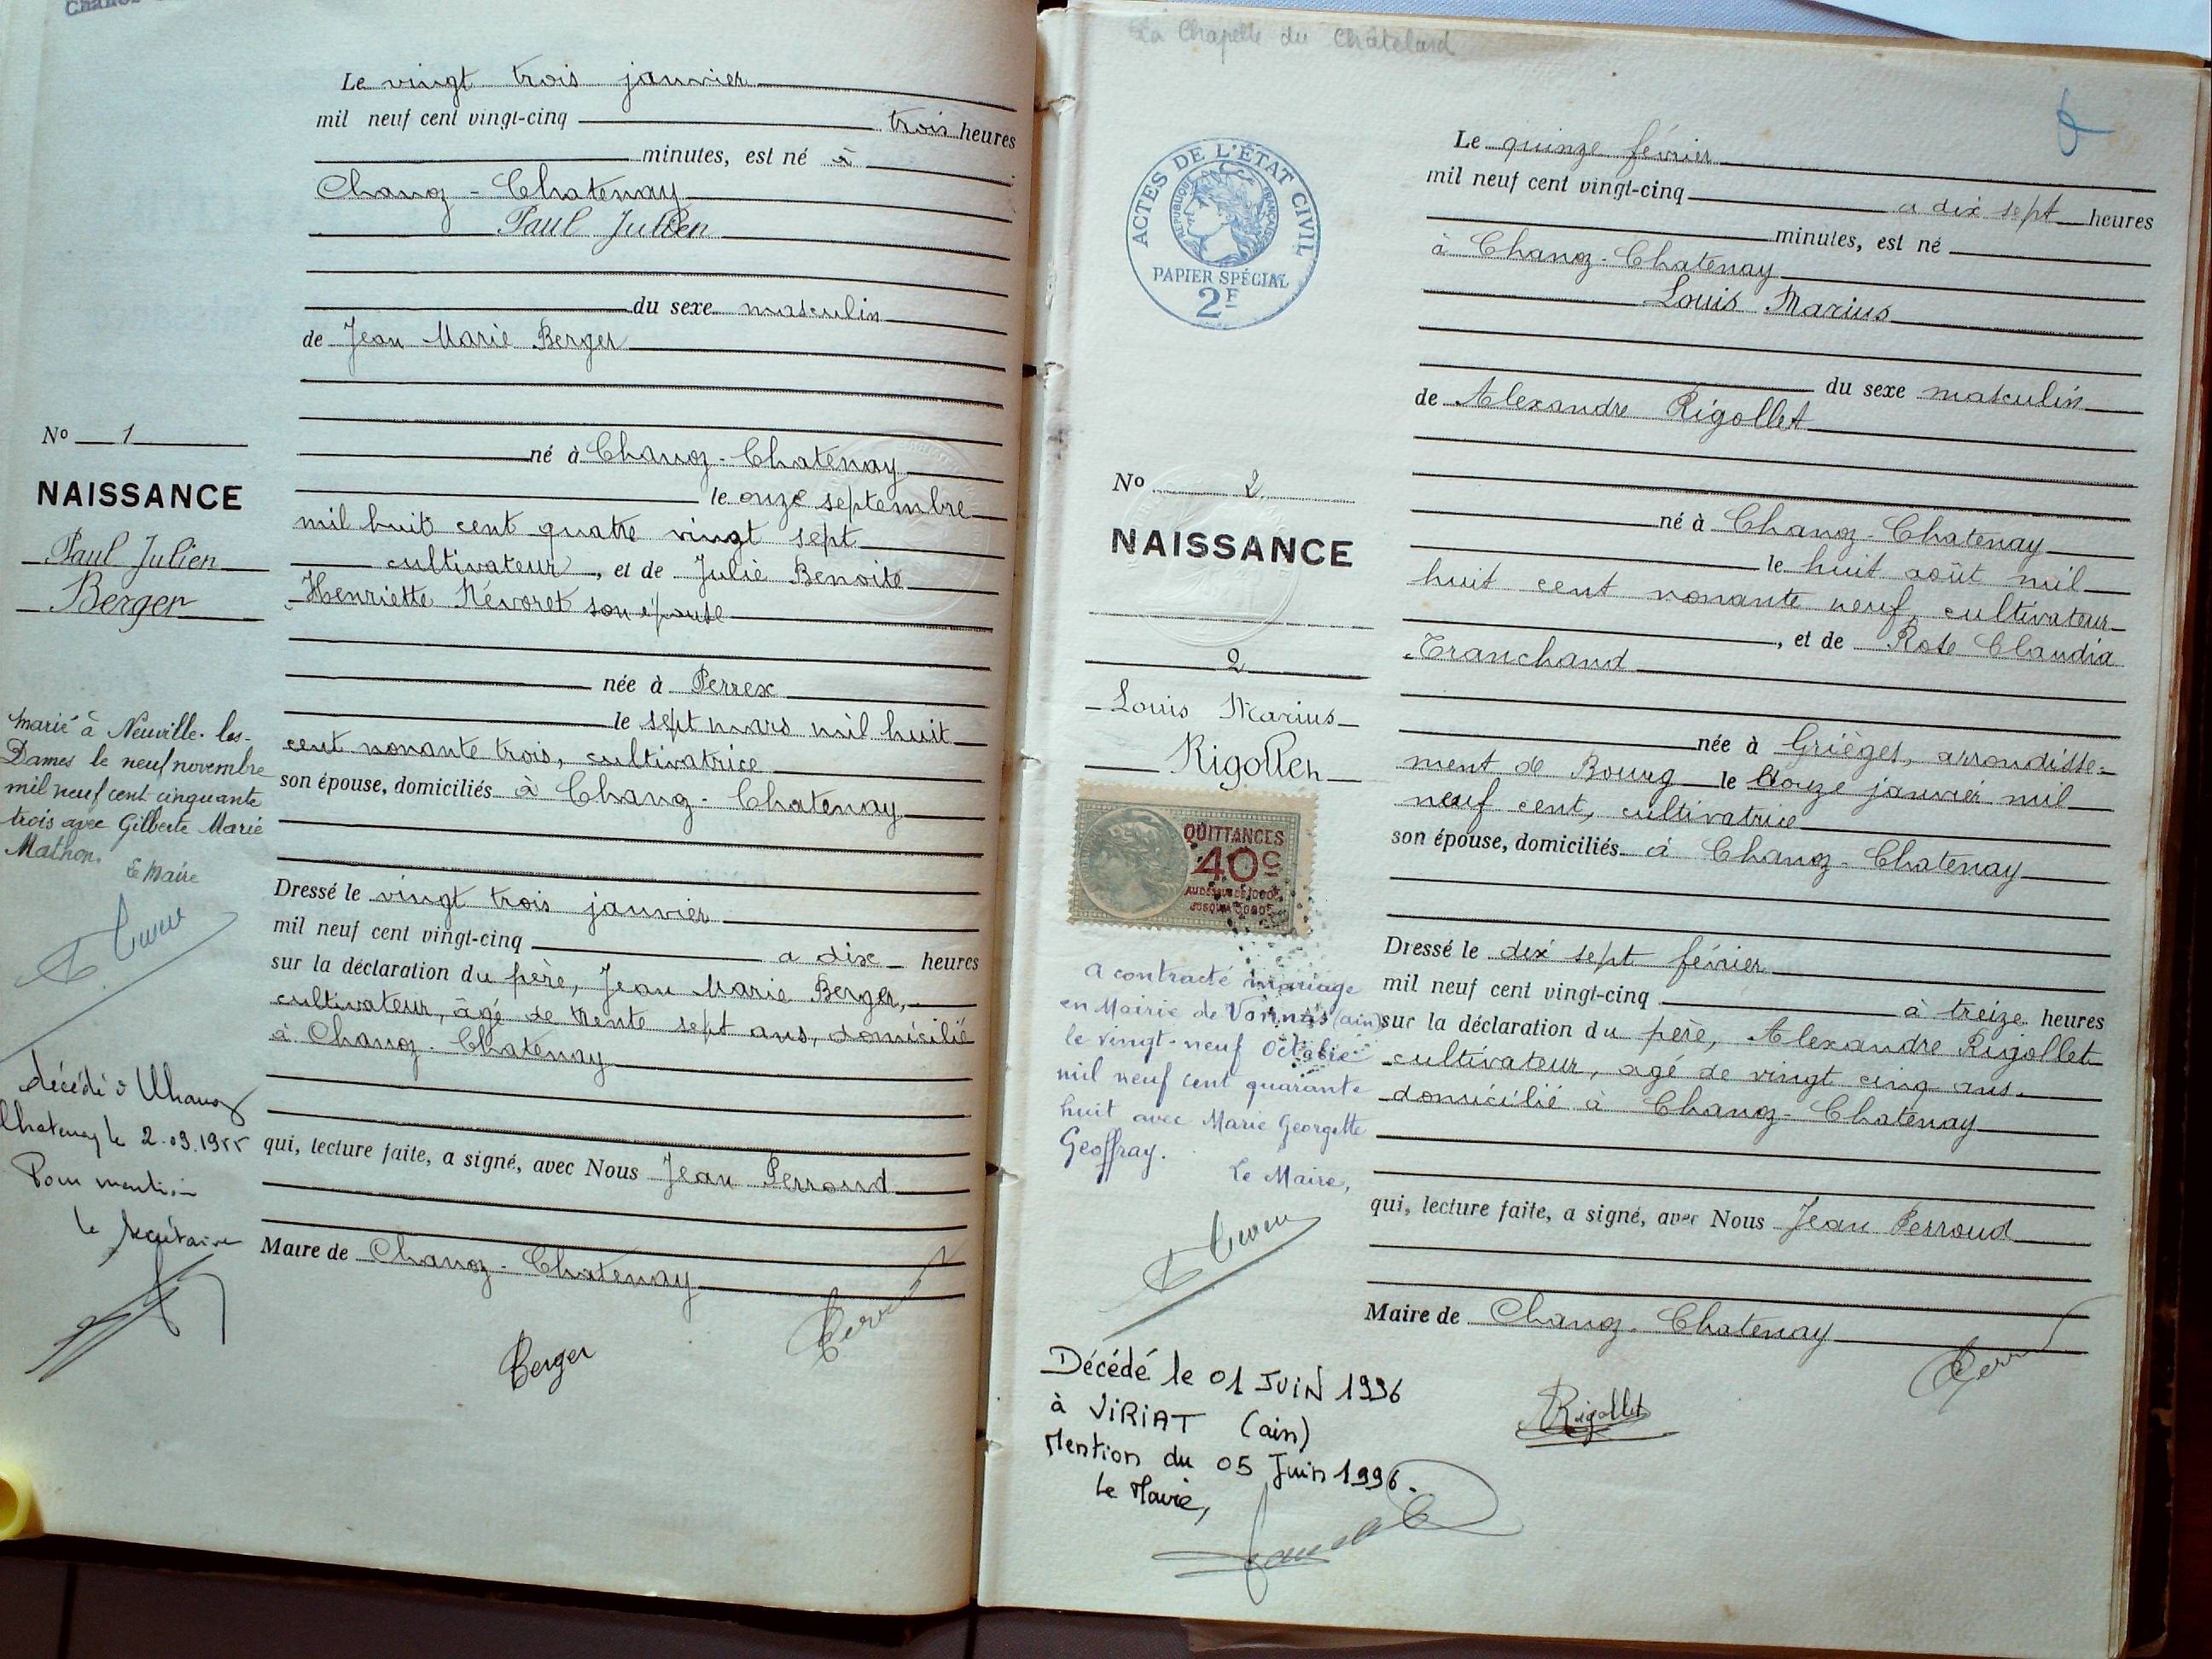 Le vingt trois janvier
mil neuf cent vingt-cinq trois heures
minutes, est né à
Chanoz-Chatenay
Paul Julien
du sexe masculin
de Jean Marie Berger
né à Chanoz-Chatenay
le onze septembre
mil huit cent quatre vingt sept
cultivateur, et de Julie Benoite
Henriette Névoret son épouse
née à Perrex
le sept mars mil huit
cent nonante trois, cultivatrice
son épouse, domiciliés à Chanoz-Chatenay
Dressé le vingt trois janvier
mil neuf cent vingt-cinq a dix heures
sur la déclaration du père, Jean Marie Berger,
cultivateur, âgé de trente sept ans, domicilié
à Chanoz-Chatenay
qui, lecture faite, a signé, avec Nous Jean Perroud
Maire de Chanoz-Chatenay
Berger
No 1
NAISSANCE
Paul Julien
Berger
Marié à Neuville-les-
Dames le neuf novembre
mil neuf cent cinquante
trois avec Gilberte Marie
Mathon.
Le Maire
décédé à Chanoz
Chatenay le 2.09.1955
Pour mention
le secrétaire
La Chapelle du Châtelard
ACTES DE L'ÉTAT CIVIL
RÉPUBLIQUE FRANÇAISE
PAPIER SPÉCIAL
2F
Le quinze février
mil neuf cent vingt-cinq a dix sept heures
minutes, est né
à Chanoz-Chatenay
Louis Marius
du sexe masculin
de Alexandre Rigollet
né à Chanoz-Chatenay
le huit août mil
huit cent nonante neuf, cultivateur
, et de Rose Claudia
Tranchand
née à Grièges, arrondisse-
ment de Bourg le douze janvier mil
neuf cent, cultivatrice
son épouse, domiciliés à Chanoz-Chatenay
Dressé le dix sept février
mil neuf cent vingt-cinq à treize heures
sur la déclaration du père, Alexandre Rigollet
cultivateur, agé de vingt cinq ans.
domicilié à Chanoz-Chatenay
qui, lecture faite, a signé, avec Nous Jean Perroud
Maire de Chanoz-Chatenay
Rigollet
No 2
NAISSANCE
2
Louis Marius
Rigollet
QUITTANCES
40c
a contracté mariage
en Mairie de Vonnas (ain)
le vingt-neuf Octobre
mil neuf cent quarante
huit avec Marie Georgette
Geoffray.
Le Maire,
Décédé le 01 JUIN 1996
à VIRIAT (ain)
Mention du 05 Juin 1996.
Le Maire,